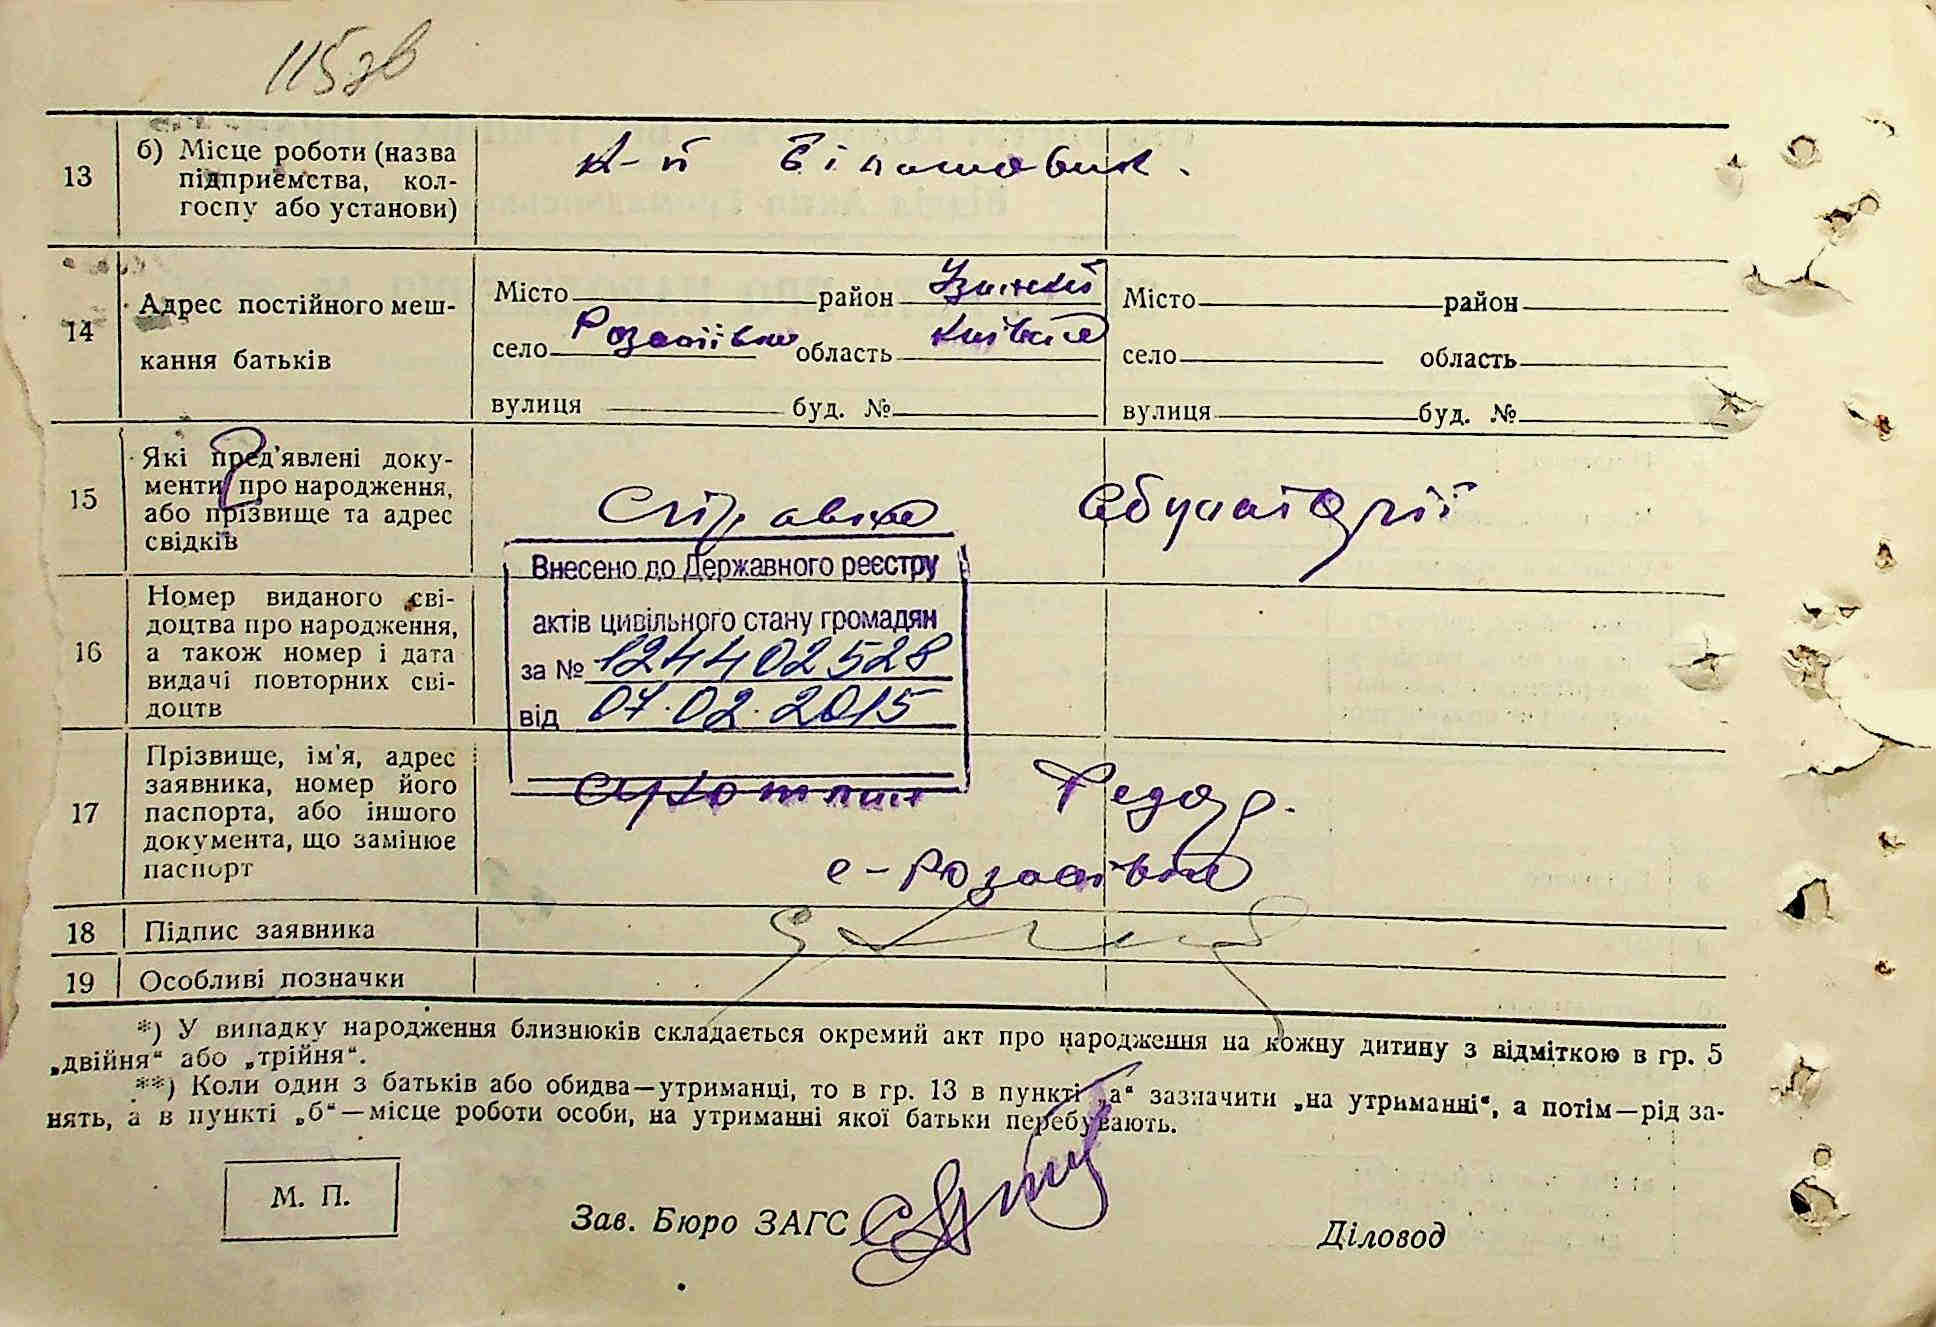 115 зв
13
б) Місце роботи (назва
підприємства, кол-
госпу або установи)
к-п Більшовик.
14
Адрес постійного меш-
кання батьків
Місто район
село Розаліївка область Київська
вулиця буд. №
Місто район
село область
вулиця буд. №
15
Які пред'явлені доку-
менти про народження,
або прізвище та адрес
свідків
Справка
16
Номер виданого сві-
доцтва про народження,
а також номер і дата
видачі повторних сві-
доцтв
Внесено до Державного реєстру
актів цивільного стану громадян
за № 124402528
від 07.02.2015
17
Прізвище, ім'я, адрес
заявника, номер його
паспорта, або іншого
документа, що замінює
паспорт
Федор.
с-Розаліївка
18
Підпис заявника
19
Особливі позначки
*) У випадку народження близнюків складається окремий акт про народження на кожну дитину з відміткою в гр. 5
„двійня“ або „трійня“.
**) Коли один з батьків або обидва—утриманці, то в гр. 13 в пункті „а“ зазначити „на утриманні“, а потім—рід за-
нять, а в пункті „б“—місце роботи особи, на утриманні якої батьки перебувають.
М. П.
Зав. Бюро ЗАГС
Діловод